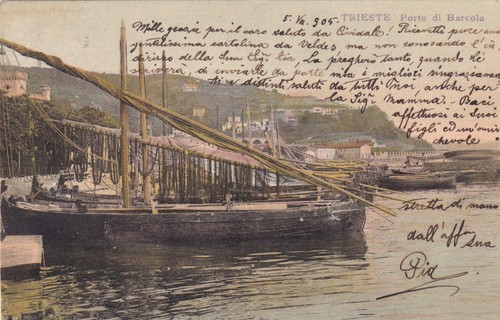 5. VII. 905. TRIESTE Porto di Barcola
Mille grazie per il caro saluto da Cividale! Ricevetti pure
gentilissima cartolina da Veldes, ma non conoscendo l'in
dirizzo della Sua Sigra Zia, La pregherò tanto, quando Le
scriverà di inviarle da parte mia i migliori ringraziamen
ti e distinti saluti da tutti Noi, anche per
la Sigra Mamma. Baci
affettuosi ai Suoi
figli ed un'ami
chevole
stretta di mano
dall'affma
Sua
Pia